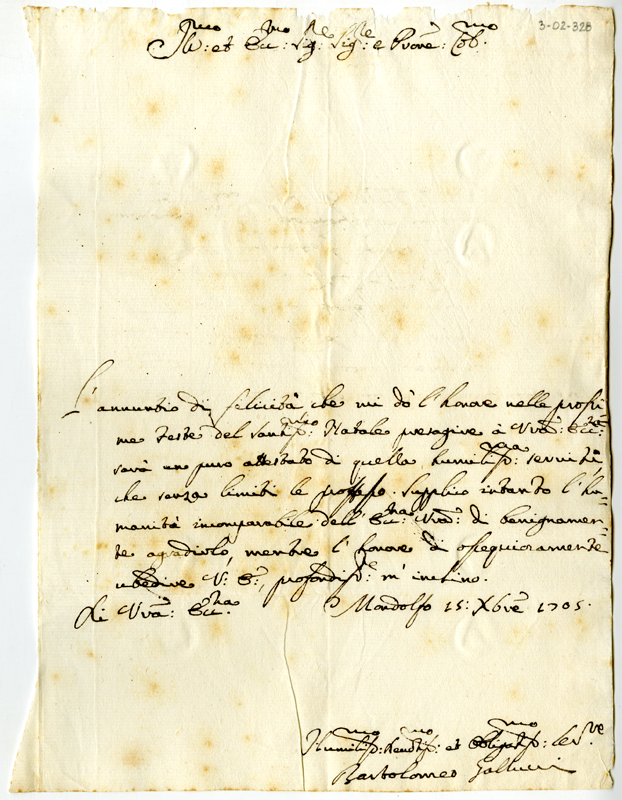 3-02-328
Ill:mo et Ecc:mo Sig:re Sig:re e Prone: Col:mo
L'annuntio di felicità che mi dò l'honore nelle prossi
me feste del Santiss:mo Natale presagire à Vra: Ecc:za
sarà un puro attestato di quella humiliss:ma servitù,
che senza limiti le professo. Supplico intanto l'hu=
manità incomparabile dell'Ecc:za Vra: di benignamen=
te agradirlo, mentre l'honore di ossequiosamente
ubedire V: E:, profondiss:e m'inchino.
Di Vra: Ecc:za Mondolfo 15: Xbre 1705.
Humiliss:mo Devotiss:mo et Obligatiss:mo Ser:re
Bartolomeo Gallucci